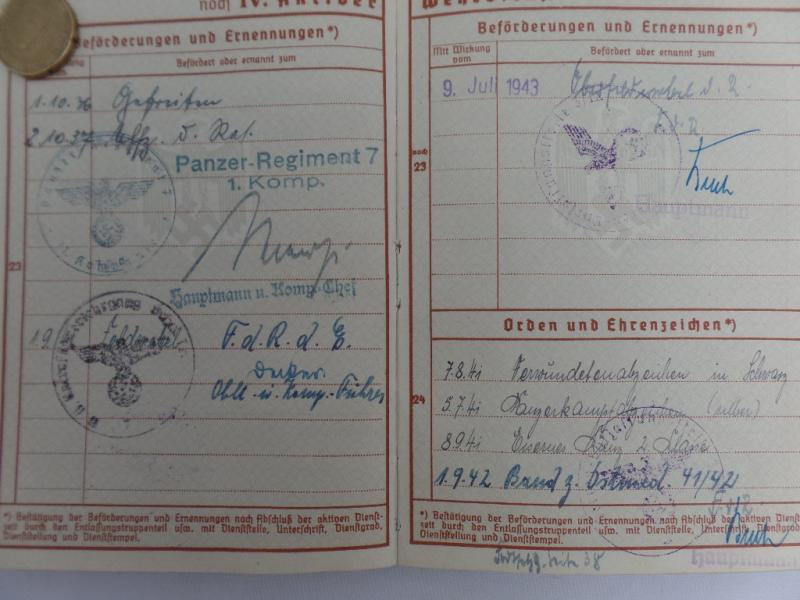 noch IV. Aktiver
Beförderungen und Ernennungen*)
Befördert oder ernannt zum
1.10.36 Gefreiten
2.10.37 Uffz. d. Res.
Panzer-Regiment 7
1. Komp.
Hauptmann u. Komp.-Chef
23
19
Feldwebel
F.d.R.d.E.
Oblt. u. Komp.-Führer
*) Bestätigung der Beförderungen und Ernennungen nach Abschluß der aktiven Dienst-
zeit durch den Entlassungstruppenteil usw. mit Dienststelle, Unterschrift, Dienstgrad,
Dienststellung und Dienststempel.
Beförderungen und Ernennungen*)
Mit Wirkung
vom
Befördert oder ernannt zum
9. Juli 1943 Oberfeldwebel d. R.
noch
23
Hauptmann
Orden und Ehrenzeichen*)
7.8.41 Verwundetenabzeichen in Schwarz
24
5.7.41 Panzerkampfabzeichen (silber)
8.9.41 Eisernes Kreuz 2. Klasse
1.9.42 Band z. Ostmed. 41/42
*) Bestätigung der Beförderungen und Ernennungen nach Abschluß der aktiven Dienst-
zeit durch den Entlassungstruppenteil usw. mit Dienststelle, Unterschrift, Dienstgrad,
Dienststellung und Dienststempel.
Hauptmann
Fortsetzg. Seite 38